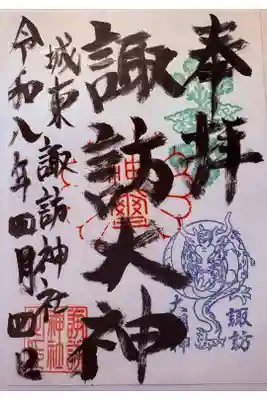 奉拝
諏訪大神
城東 諏訪神社
令和八年四月四日
諏訪
諏訪神社